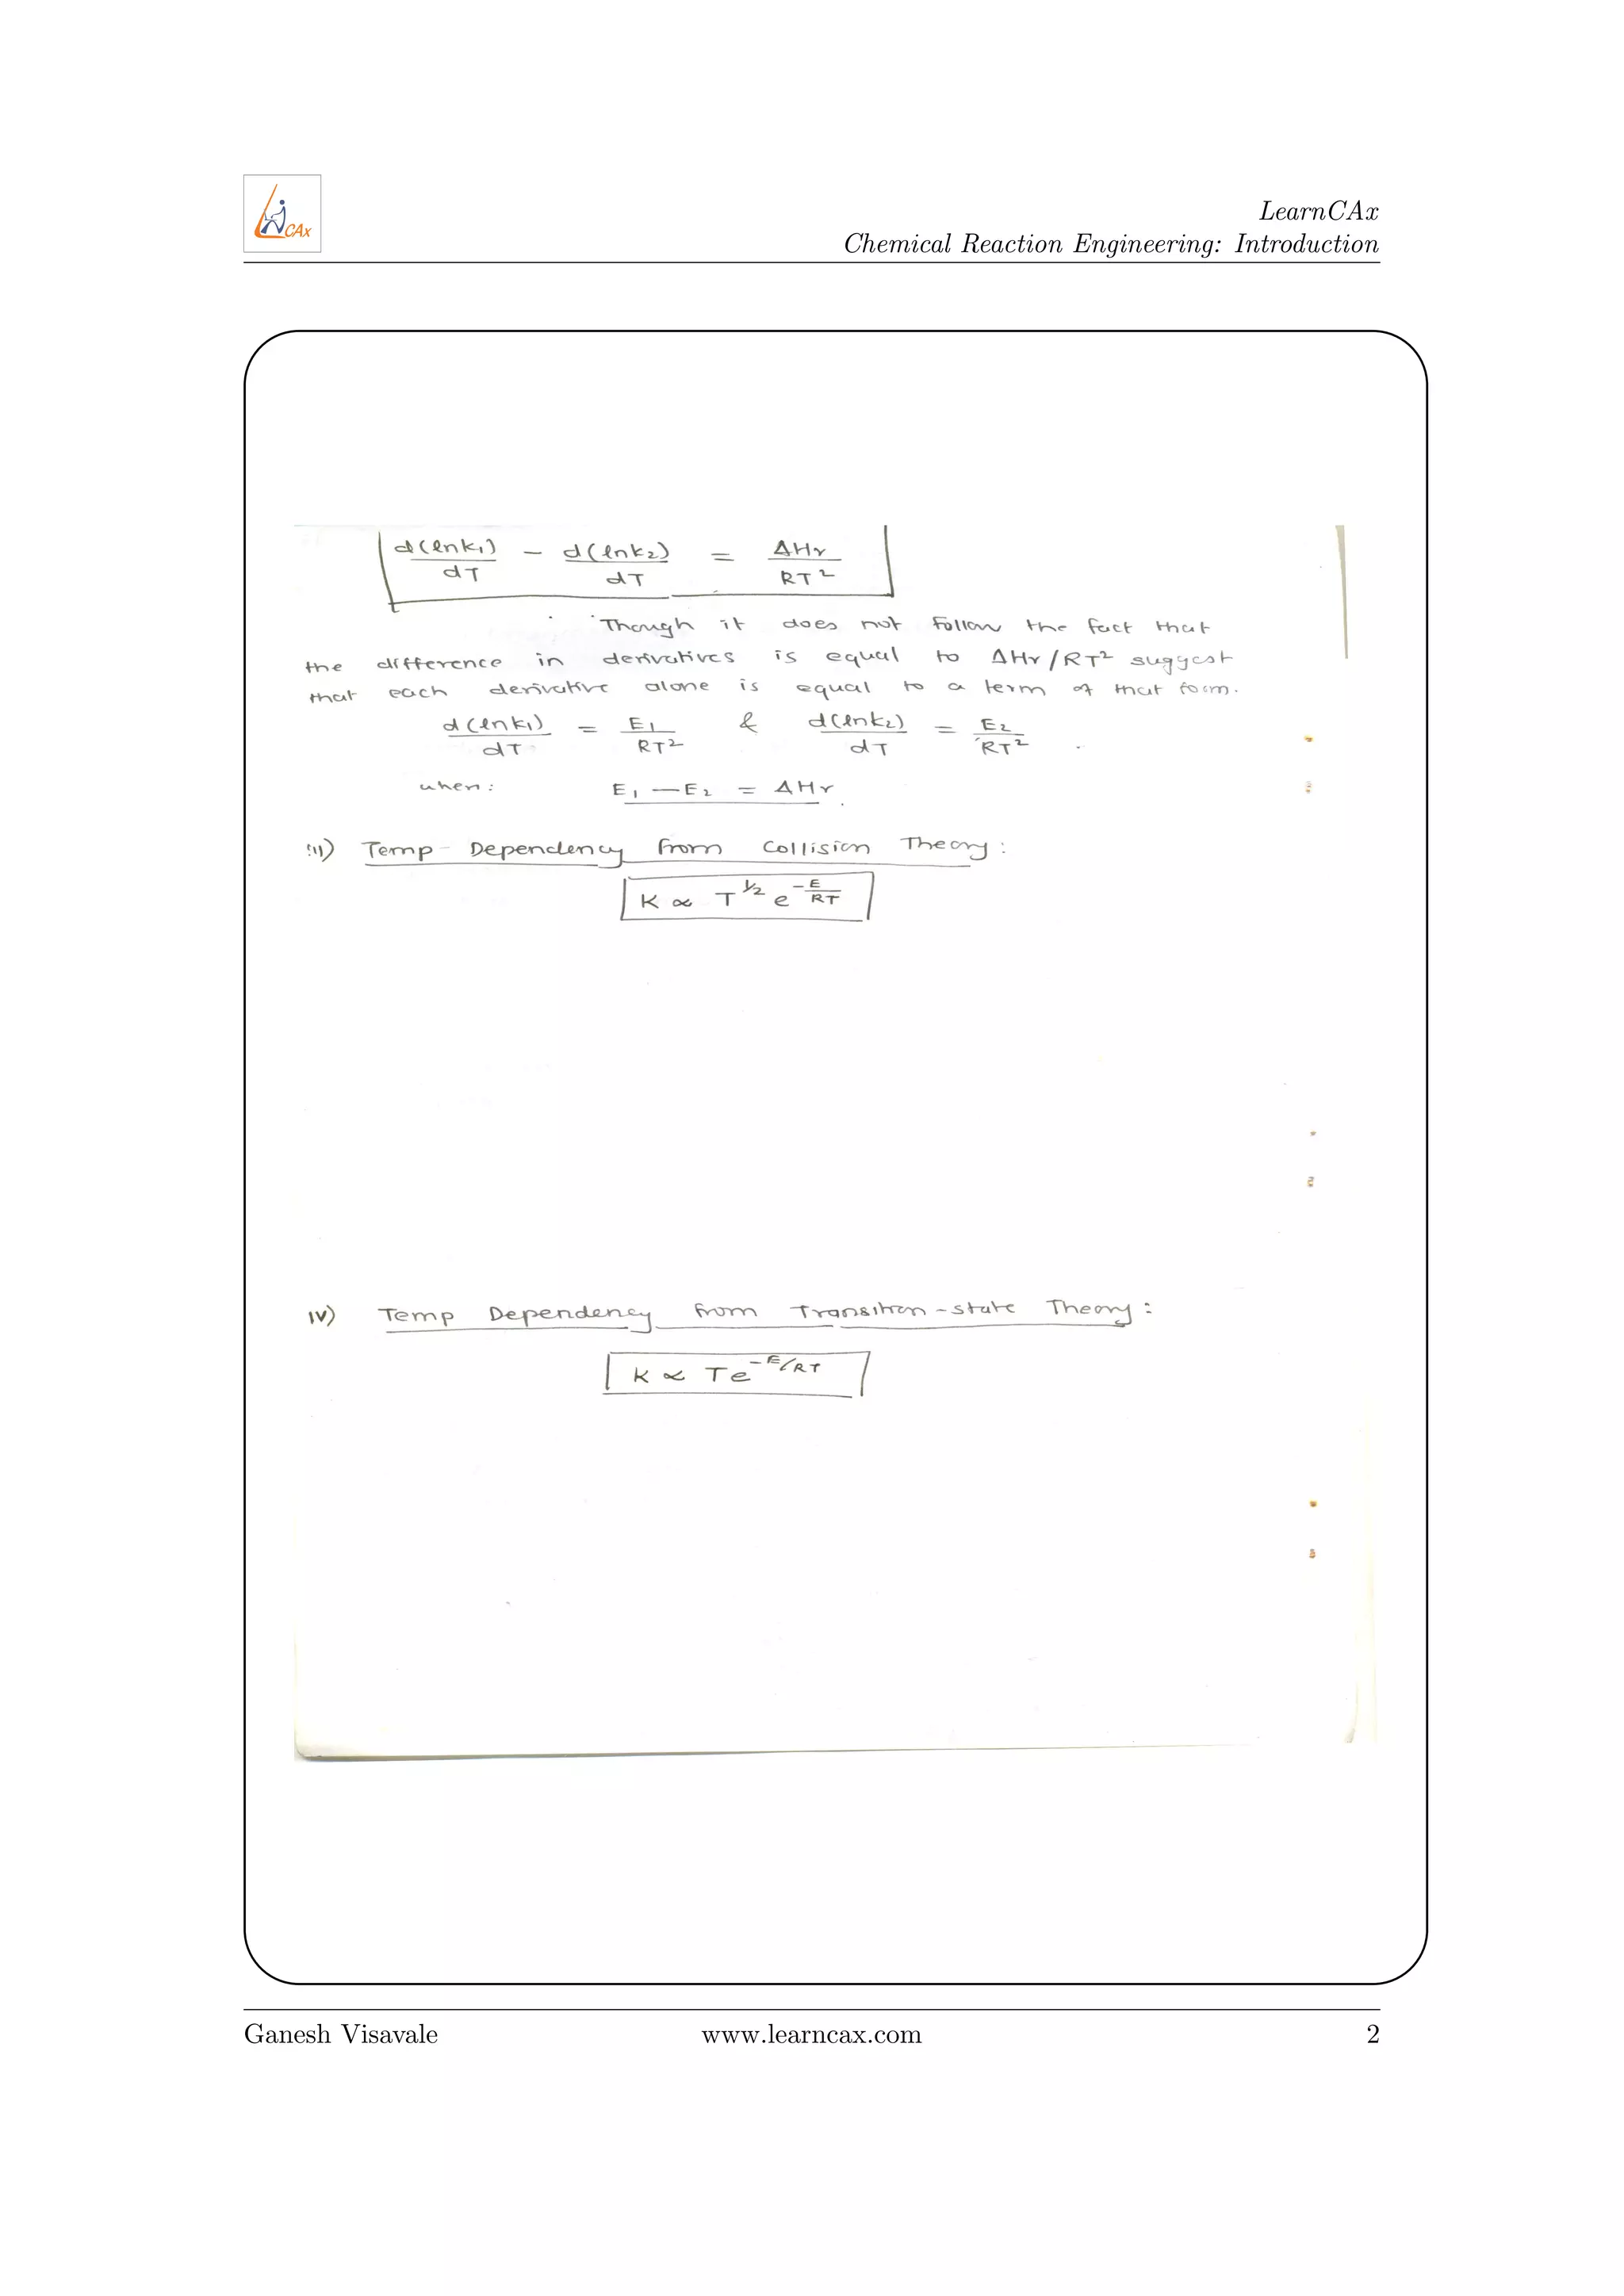 CAx
LearnCAx
Chemical Reaction Engineering: Introduction
d(lnk₁)/dT - d(lnk₂)/dT = ΔHr/RT²
Though it does not follow the fact that
the difference in derivatives is equal to ΔHr/RT² suggest
that each derivative alone is equal to a term of that form.
d(lnk₁)/dT = E₁/RT² & d(lnk₂)/dT = E₂/RT².
when: E₁ — E₂ = ΔHr.
iii) Temp - Dependency from Collision Theory:
K ∝ T^1/2 e^-E/RT
IV) Temp Dependency from Transition-state Theory:
K ∝ T e^-E/RT
Ganesh Visavale www.learncax.com 2